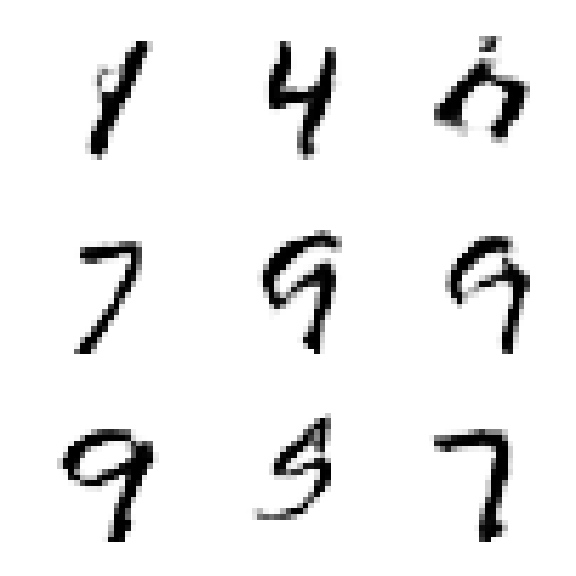 1 4
7 9 9
9 5 7